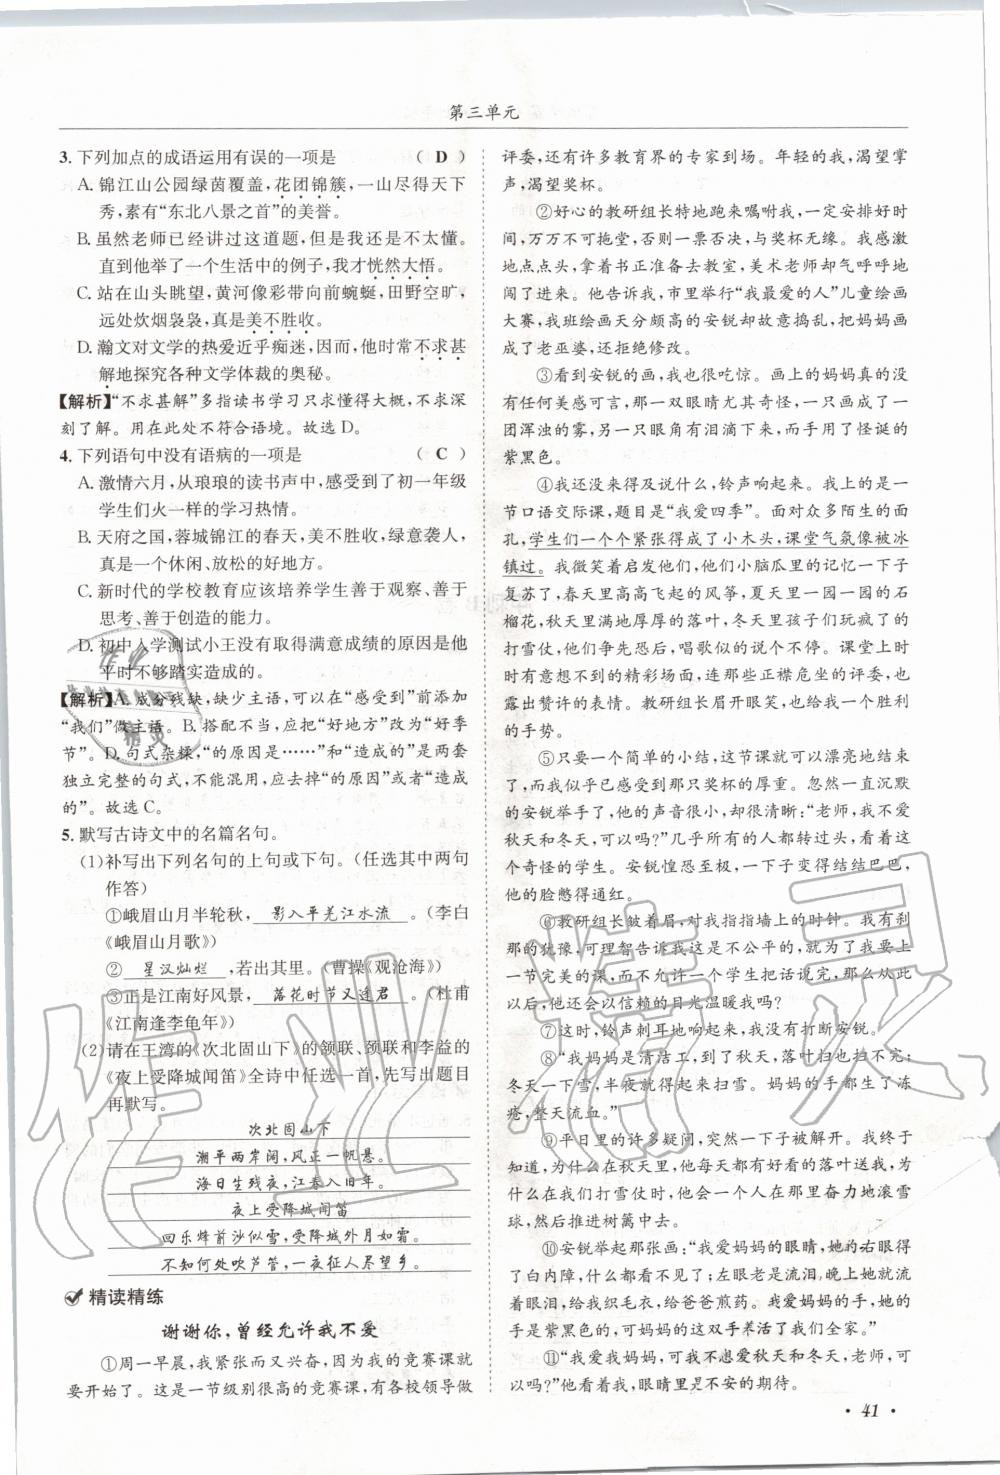 第三单元
3. 下列加点的成语运用有误的一项是 （ D ）
A. 锦江山公园绿茵覆盖，花团锦簇，一山尽得天下
秀，素有“东北八景之首”的美誉。
B. 虽然老师已经讲过这道题，但是我还是不太懂。
直到他举了一个生活中的例子，我才恍然大悟。
C. 站在山头眺望，黄河像彩带向前蜿蜒，田野空旷，
远处炊烟袅袅，真是美不胜收。
D. 瀚文对文学的热爱近乎痴迷，因而，他时常不求甚
解地探究各种文学体裁的奥秘。
【解析】“不求甚解”多指读书学习只求懂得大概，不求深
刻了解。用在此处不符合语境。故选 D。
4. 下列语句中没有语病的一项是 （ C ）
A. 激情六月，从琅琅的读书声中，感受到初一年级
学生们火一样的学习热情。
B. 天府之国，蓉城锦江的春天，美不胜收，绿意袭人，
真是一个休闲、放松的好地方。
C. 新时代的学校教育应该培养学生善于观察、善于
思考、善于创造的能力。
D. 初中入学测试小王没有取得满意成绩的原因是他
平时不够踏实造成的。
【解析】A. 成分残缺，缺少主语，可以在“感受到”前添加
“我们”做主语。B. 搭配不当，应把“好地方”改为“好季
节”。D. 句式杂糅，“的原因是……”和“造成的”是两套
独立完整的句式，不能混用，应去掉“的原因”或者“造成
的”。故选 C。
5. 默写古诗文中的名篇名句。
(1)补写出下列名句的上句或下句。（任选其中两句
作答）
①峨眉山月半轮秋， 影入平羌江水流 。（李白
《峨眉山月歌》）
② 星汉灿烂 ，若出其里。（曹操《观沧海》）
③正是江南好风景， 落花时节又逢君 。（杜甫
《江南逢李龟年》）
(2)请在王湾的《次北固山下》的颔联、颈联和李益的
《夜上受降城闻笛》全诗中任选一首，先写出题目
再默写。
次北固山下
潮平两岸阔，风正一帆悬。
海日生残夜，江春入旧年。
夜上受降城闻笛
回乐烽前沙似雪，受降城外月如霜。
不知何处吹芦管，一夜征人尽望乡。
精读精练
谢谢你，曾经允许我不爱
①周一早晨，我紧张而又兴奋，因为我的竞赛课就
要开始了。这是一节级别很高的竞赛课，有各校领导做
评委，还有许多教育界的专家到场。年轻的我，渴望掌
声，渴望奖杯。
②好心的教研组长特地跑来嘱咐我，一定安排好时
间，万万不可拖堂，否则一票否决，与奖杯无缘。我感激
地点点头，拿着书正准备去教室，美术老师却气呼呼地
闯了进来。他告诉我，市里举行“我最爱的人”儿童绘画
大赛，我班绘画天分颇高的安锐却故意捣乱，把妈妈画
成了老巫婆，还拒绝修改。
③看到安锐的画，我也很吃惊。画上的妈妈真的没
有任何美感可言，那一双眼睛尤其奇怪，一只画成了一
团浑浊的雾，另一只眼角有泪滴下来，而手用了怪诞的
紫黑色。
④我还没来得及说什么，铃声响起来。我上的是一
节口语交际课，题目是“我爱四季”。面对众多陌生的面
孔，学生们一个个紧张得成了小木头，课堂气氛像被冰
镇过。我微笑着启发他们，他们小脑瓜里的记忆一下子
复苏了，春天里高高飞起的风筝，夏天里一园一园的石
榴花，秋天里满地厚厚的落叶，冬天里孩子们玩疯了的
打雪仗，他们争先恐后，唧唧喳喳似的说个不停。课堂上时
时有意想不到的精彩场面，连那些正襟危坐的评委，也
露出赞许的表情。教研组长眉开眼笑，也给我一个胜利
的手势。
⑤只要一个简单的小结，这节课就可以漂亮地结束
了，而我似乎也感觉到那只奖杯的厚重。忽然，一直沉默
的安锐举手了，他的声音很小，却很清晰：“老师，我不爱
秋天和冬天，可以吗？”几乎所有的人都转过头，看着这
个奇怪的学生。安锐惶恐至极，一下子变得结结巴巴，
他的脸憋得通红。
⑥教研组长皱着眉，对我指指墙上的时钟。我有刹
那的犹豫，可理智告诉我这是不公平的，为了我要上一
节完美的课，而不允许一个学生把话说完，那么从此
以后，他还会以信赖的目光温暖我吗？
⑦这时，铃声刺耳地响起来，我没有打断安锐。
⑧“我妈妈是清洁工，到了秋天，落叶扫也扫不完；
冬天一下雪，半夜就得起来扫雪。妈妈的手都生了冻
疮，整天流血。”
⑨平日里的许多疑问，突然一下子被解开。我终于
知道，为什么在秋天里，他每天都有好看的落叶送我，为
什么在我们打雪仗时，他会一个人在那里奋力地滚雪
球，然后推进树篱中去。
⑩安锐举起那张画：“我爱妈妈的眼睛，她的右眼得
了白内障，什么都看不见了；左眼老是流泪，晚上她就流
着眼泪，给我织毛衣，给爸爸煎药。我爱妈妈的手，她的
手是紫黑色的，可妈妈的这双手养活了我们全家。”
⑪“我爱我妈妈，可我不想爱秋天和冬天，老师，可
以吗？”他看着我，眼睛里是不安的期待。
· 41 ·